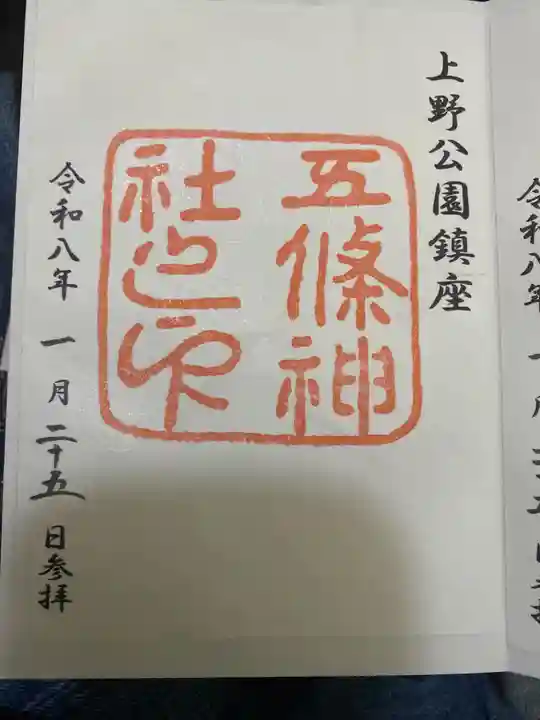 上野公園鎮座
五條神
社之印
令和八年 一月 二十五 日参拝
令和八年 一月 二十五 日参拝